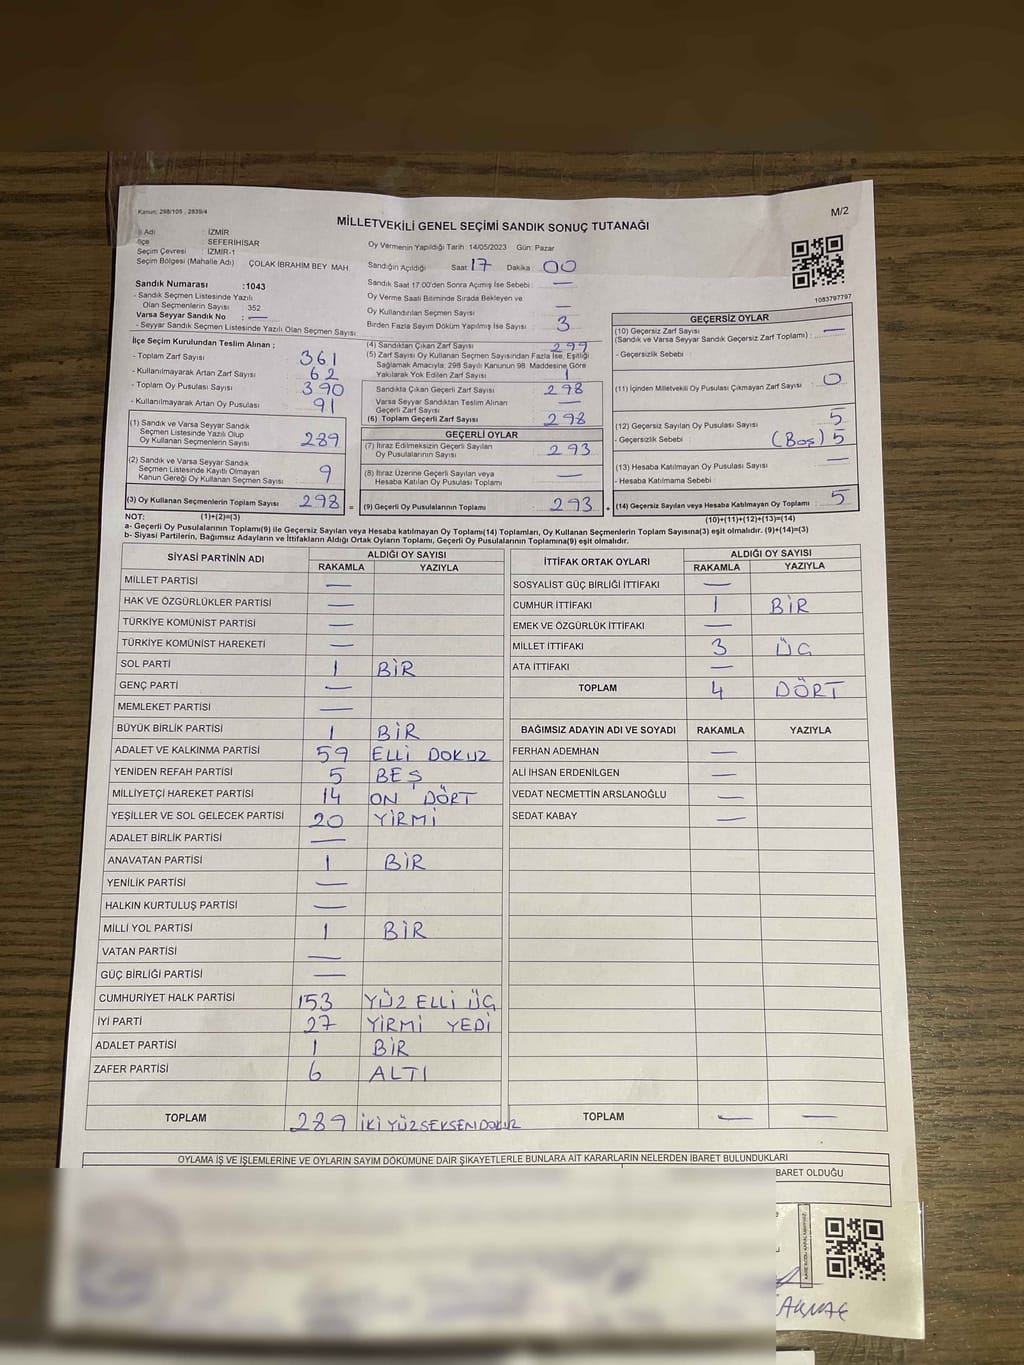 Kanun: 298/105 , 2839/4
M/2
MİLLETVEKİLİ GENEL SEÇİMİ SANDIK SONUÇ TUTANAĞI
İl Adı : İZMİR
İlçe : SEFERİHİSAR
Seçim Çevresi : İZMİR-1
Seçim Bölgesi (Mahalle Adı) : ÇOLAK İBRAHİM BEY MAH
Oy Vermenin Yapıldığı Tarih :14/05/2023 Gün: Pazar
Sandığın Açıldığı Saat :17 Dakika : 00
1083797797
Sandık Numarası :1043
- Sandık Seçmen Listesinde Yazılı
Olan Seçmenlerin Sayısı : 352
Varsa Seyyar Sandık No : —
- Seyyar Sandık Seçmen Listesinde Yazılı Olan Seçmen Sayısı:
Sandık Saat 17.00'den Sonra Açılmış İse Sebebi : —
Oy Verme Saati Bitiminde Sırada Bekleyen ve
Oy Kullandırılan Seçmen Sayısı : —
Birden Fazla Sayım Döküm Yapılmış İse Sayısı : 3
İlçe Seçim Kurulundan Teslim Alınan ;
- Toplam Zarf Sayısı : 361
- Kullanılmayarak Artan Zarf Sayısı : 62
- Toplam Oy Pusulası Sayısı : 390
- Kullanılmayarak Artan Oy Pusulası : 91
(1) Sandık ve Varsa Seyyar Sandık
Seçmen Listesinde Yazılı Olup
Oy Kullanan Seçmenlerin Sayısı : 289
(2) Sandık ve Varsa Seyyar Sandık
Seçmen Listesinde Kayıtlı Olmayan
Kanun Gereği Oy Kullanan Seçmen Sayısı : 9
(3) Oy Kullanan Seçmenlerin Toplam Sayısı : 298 =
(4) Sandıktan Çıkan Zarf Sayısı : 299
(5) Zarf Sayısı Oy Kullanan Seçmen Sayısından Fazla İse, Eşitliği
Sağlamak Amacıyla, 298 Sayılı Kanunun 98. Maddesine Göre
Yakılarak Yok Edilen Zarf Sayısı : 1
Sandıkta Çıkan Geçerli Zarf Sayısı : 298
Varsa Seyyar Sandıktan Teslim Alınan
Geçerli Zarf Sayısı : —
(6) Toplam Geçerli Zarf Sayısı : 298
GEÇERLİ OYLAR
(7) İtiraz Edilmeksizin Geçerli Sayılan
Oy Pusulalarının Sayısı : 293
(8) İtiraz Üzerine Geçerli Sayılan veya
Hesaba Katılan Oy Pusulası Toplamı : —
(9) Geçerli Oy Pusulalarının Toplamı : 293 +
GEÇERSİZ OYLAR
(10) Geçersiz Zarf Sayısı : —
(Sandık ve Varsa Seyyar Sandık Geçersiz Zarf Toplamı)
- Geçersizlik Sebebi :
(11) İçinden Milletvekili Oy Pusulası Çıkmayan Zarf Sayısı : 0
(12) Geçersiz Sayılan Oy Pusulası Sayısı : 5
- Geçersizlik Sebebi : (Boş) 5
(13) Hesaba Katılmayan Oy Pusulası Sayısı : —
- Hesaba Katılmama Sebebi :
(14) Geçersiz Sayılan veya Hesaba Katılmayan Oy Toplamı : 5
NOT: (1)+(2)=(3)
(10)+(11)+(12)+(13)=(14)
a- Geçerli Oy Pusulalarının Toplamı(9) ile Geçersiz Sayılan veya Hesaba katılmayan Oy Toplamı(14) Toplamları, Oy Kullanan Seçmenlerin Toplam Sayısına(3) eşit olmalıdır. (9)+(14)=(3)
b- Siyasi Partilerin, Bağımsız Adayların ve İttifakların Aldığı Ortak Oyların Toplamı, Geçerli Oy Pusulalarının Toplamına(9) eşit olmalıdır.
SİYASİ PARTİNİN ADI ALDIĞI OY SAYISI
RAKAMLA YAZIYLA
MİLLET PARTİSİ —
HAK VE ÖZGÜRLÜKLER PARTİSİ —
TÜRKİYE KOMÜNİST PARTİSİ —
TÜRKİYE KOMÜNİST HAREKETİ —
SOL PARTİ 1 BİR
GENÇ PARTİ —
MEMLEKET PARTİSİ —
BÜYÜK BİRLİK PARTİSİ 1 BİR
ADALET VE KALKINMA PARTİSİ 59 ELLİ DOKUZ
YENİDEN REFAH PARTİSİ 5 BEŞ
MİLLİYETÇİ HAREKET PARTİSİ 14 ON DÖRT
YEŞİLLER VE SOL GELECEK PARTİSİ 20 YİRMİ
ADALET BİRLİK PARTİSİ —
ANAVATAN PARTİSİ 1 BİR
YENİLİK PARTİSİ —
HALKIN KURTULUŞ PARTİSİ —
MİLLİ YOL PARTİSİ 1 BİR
VATAN PARTİSİ —
GÜÇ BİRLİĞİ PARTİSİ —
CUMHURİYET HALK PARTİSİ 153 YÜZ ELLİ ÜÇ
İYİ PARTİ 27 YİRMİ YEDİ
ADALET PARTİSİ 1 BİR
ZAFER PARTİSİ 6 ALTI
TOPLAM 289 İKİ YÜZ SEKSEN DOKUZ
İTTİFAK ORTAK OYLARI ALDIĞI OY SAYISI
RAKAMLA YAZIYLA
SOSYALİST GÜÇ BİRLİĞİ İTTİFAKI —
CUMHUR İTTİFAKI 1 BİR
EMEK VE ÖZGÜRLÜK İTTİFAKI —
MİLLET İTTİFAKI 3 ÜÇ
ATA İTTİFAKI —
TOPLAM 4 DÖRT
BAĞIMSIZ ADAYIN ADI VE SOYADI RAKAMLA YAZIYLA
FERHAN ADEMHAN —
ALİ İHSAN ERDENİLGEN —
VEDAT NECMETTİN ARSLANOĞLU —
SEDAT KABAY —
TOPLAM — —
OYLAMA İŞ VE İŞLEMLERİNE VE OYLARIN SAYIM DÖKÜMÜNE DAİR ŞİKAYETLERLE BUNLARA AİT KARARLARIN NELERDEN İBARET BULUNDUKLARI
BARET OLDUĞU